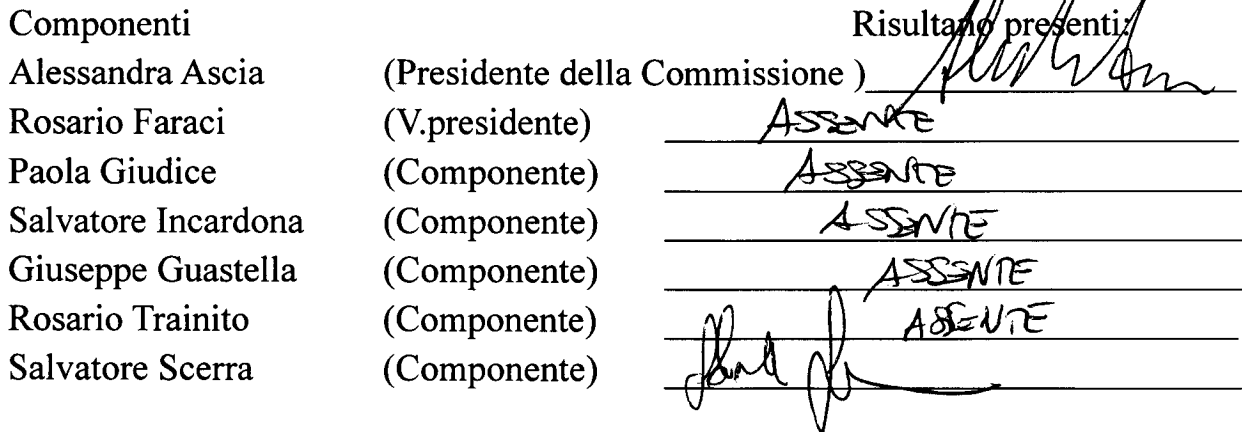 Componenti Risultano presenti:
Alessandra Ascia (Presidente della Commissione )
Rosario Faraci (V.presidente) ASSENTE
Paola Giudice (Componente) ASSENTE
Salvatore Incardona (Componente) ASSENTE
Giuseppe Guastella (Componente) ASSENTE
Rosario Trainito (Componente) ASSENTE
Salvatore Scerra (Componente)